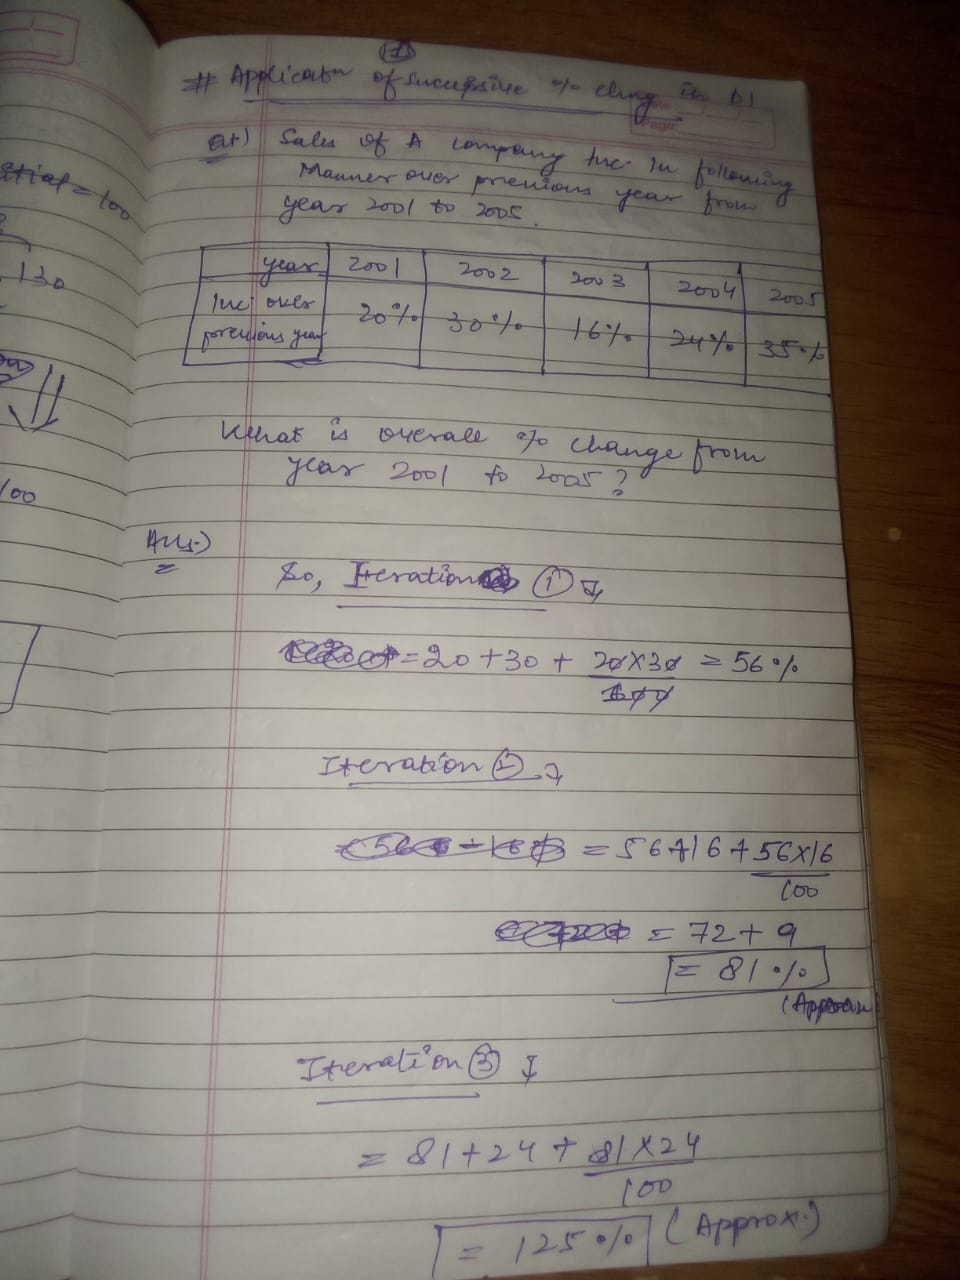 ①
# Applicatn of Succesive % chng in DI
Page:
Q1) Sales of A company Inc. In following
Manner over previous year from
year 2001 to 2005.
year 2001 2002 2003 2004 2005
Inc. over previous year 20% 30% 16% 24% 35%
What is overall % change from
year 2001 to 2005 ?
Ans.)
So, Iteration ①
= 20 + 30 + 20×30/100 = 56%
Iteration ②
= 56 + 16 + 56×16/100
= 72 + 9
= 81%
(Approx
Iteration ③
= 81 + 24 + 81×24/100
= 125% (Approx.)
= 100
130
100